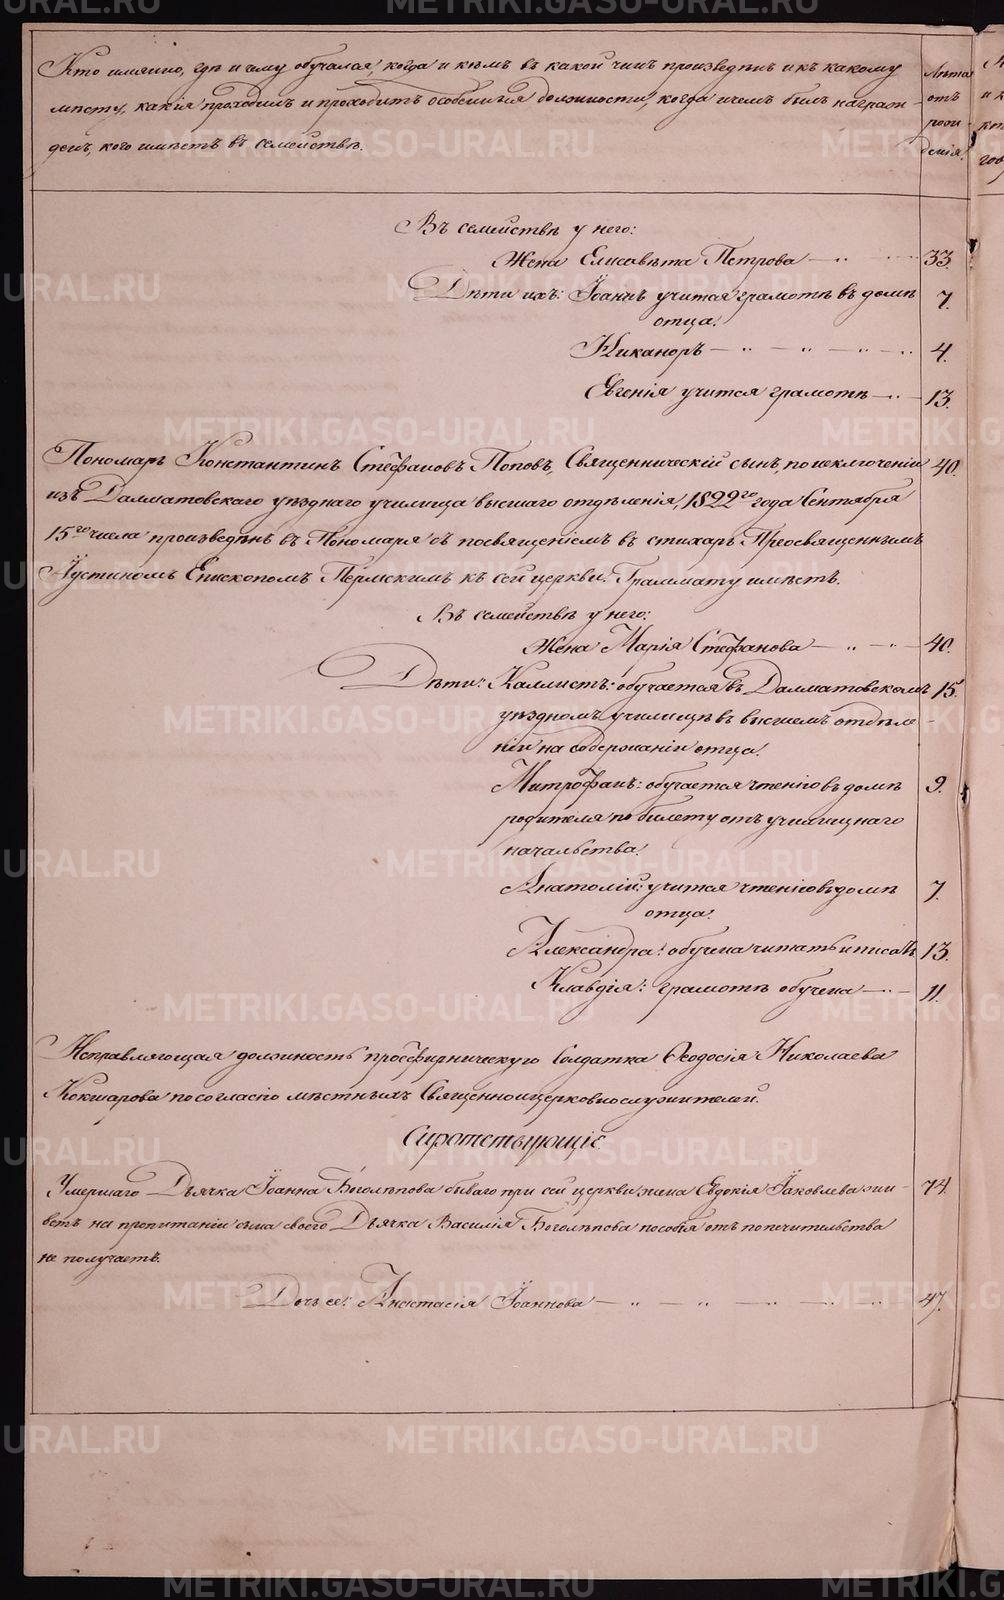 Кто имянно, гдѣ и чему обучался, когда и кѣмъ въ какой чинъ произведенъ и къ какому
мѣсту, какія проходилъ и проходитъ особенныя должности, когда и чемъ былъ награж-
денъ, кого имѣетъ въ семействѣ.
Лѣта
отъ
рож-
денія.
Въ семействѣ у него:
Жена Елисавета Петрова 33.
Дѣти ихъ: Іоаннъ учится грамотѣ въ домѣ 7.
отца.
Никаноръ 4.
Евгенія учится грамотѣ 13.
Пономарь Константинъ Стефановъ Поповъ, Священническій сынъ, по исключеніи 40.
изъ Далматовскаго уѣзднаго училища высшаго отдѣленія, 1822го года Сентября
15го числа произведенъ въ Пономаря съ посвященіемъ въ стихарь Преосвященнымъ
Іустиномъ Епископомъ Пермскимъ къ сей церкви. Граммату имѣетъ.
Въ семействѣ у него:
Жена Марія Стефанова 40.
Дѣти: Каллистъ: обучается въ Далматовскомъ 15.
уѣздномъ училищѣ въ высшемъ отдѣле-
ніи на содержаніи отца.
Митрофанъ: обучается чтенію въ домѣ 9.
родителя по билету отъ училищнаго
начальства.
Анатолій: учится чтенію въ домѣ 7.
отца.
Александра: обучена читать и писать 13.
Клавдія: грамотѣ обучена 11.
Исправляющая должность просфирническую Солдатка Ѳеодосія Николаева
Кокшарова по согласію мѣстныхъ Священноцерковнослужителей.
Сиротствующіе
Умершаго Дьячка Іоанна Боголѣпова бывшаго при сей церкви жена Евдокія Іаковлева жи- 74.
ветъ на пропитаніи сына своего Дьячка Василія Боголѣпова пособія отъ попечительства
не получаетъ.
Дочь ее: Анастасія Іоаннова 47.
METRIKI.GASO-URAL.RU